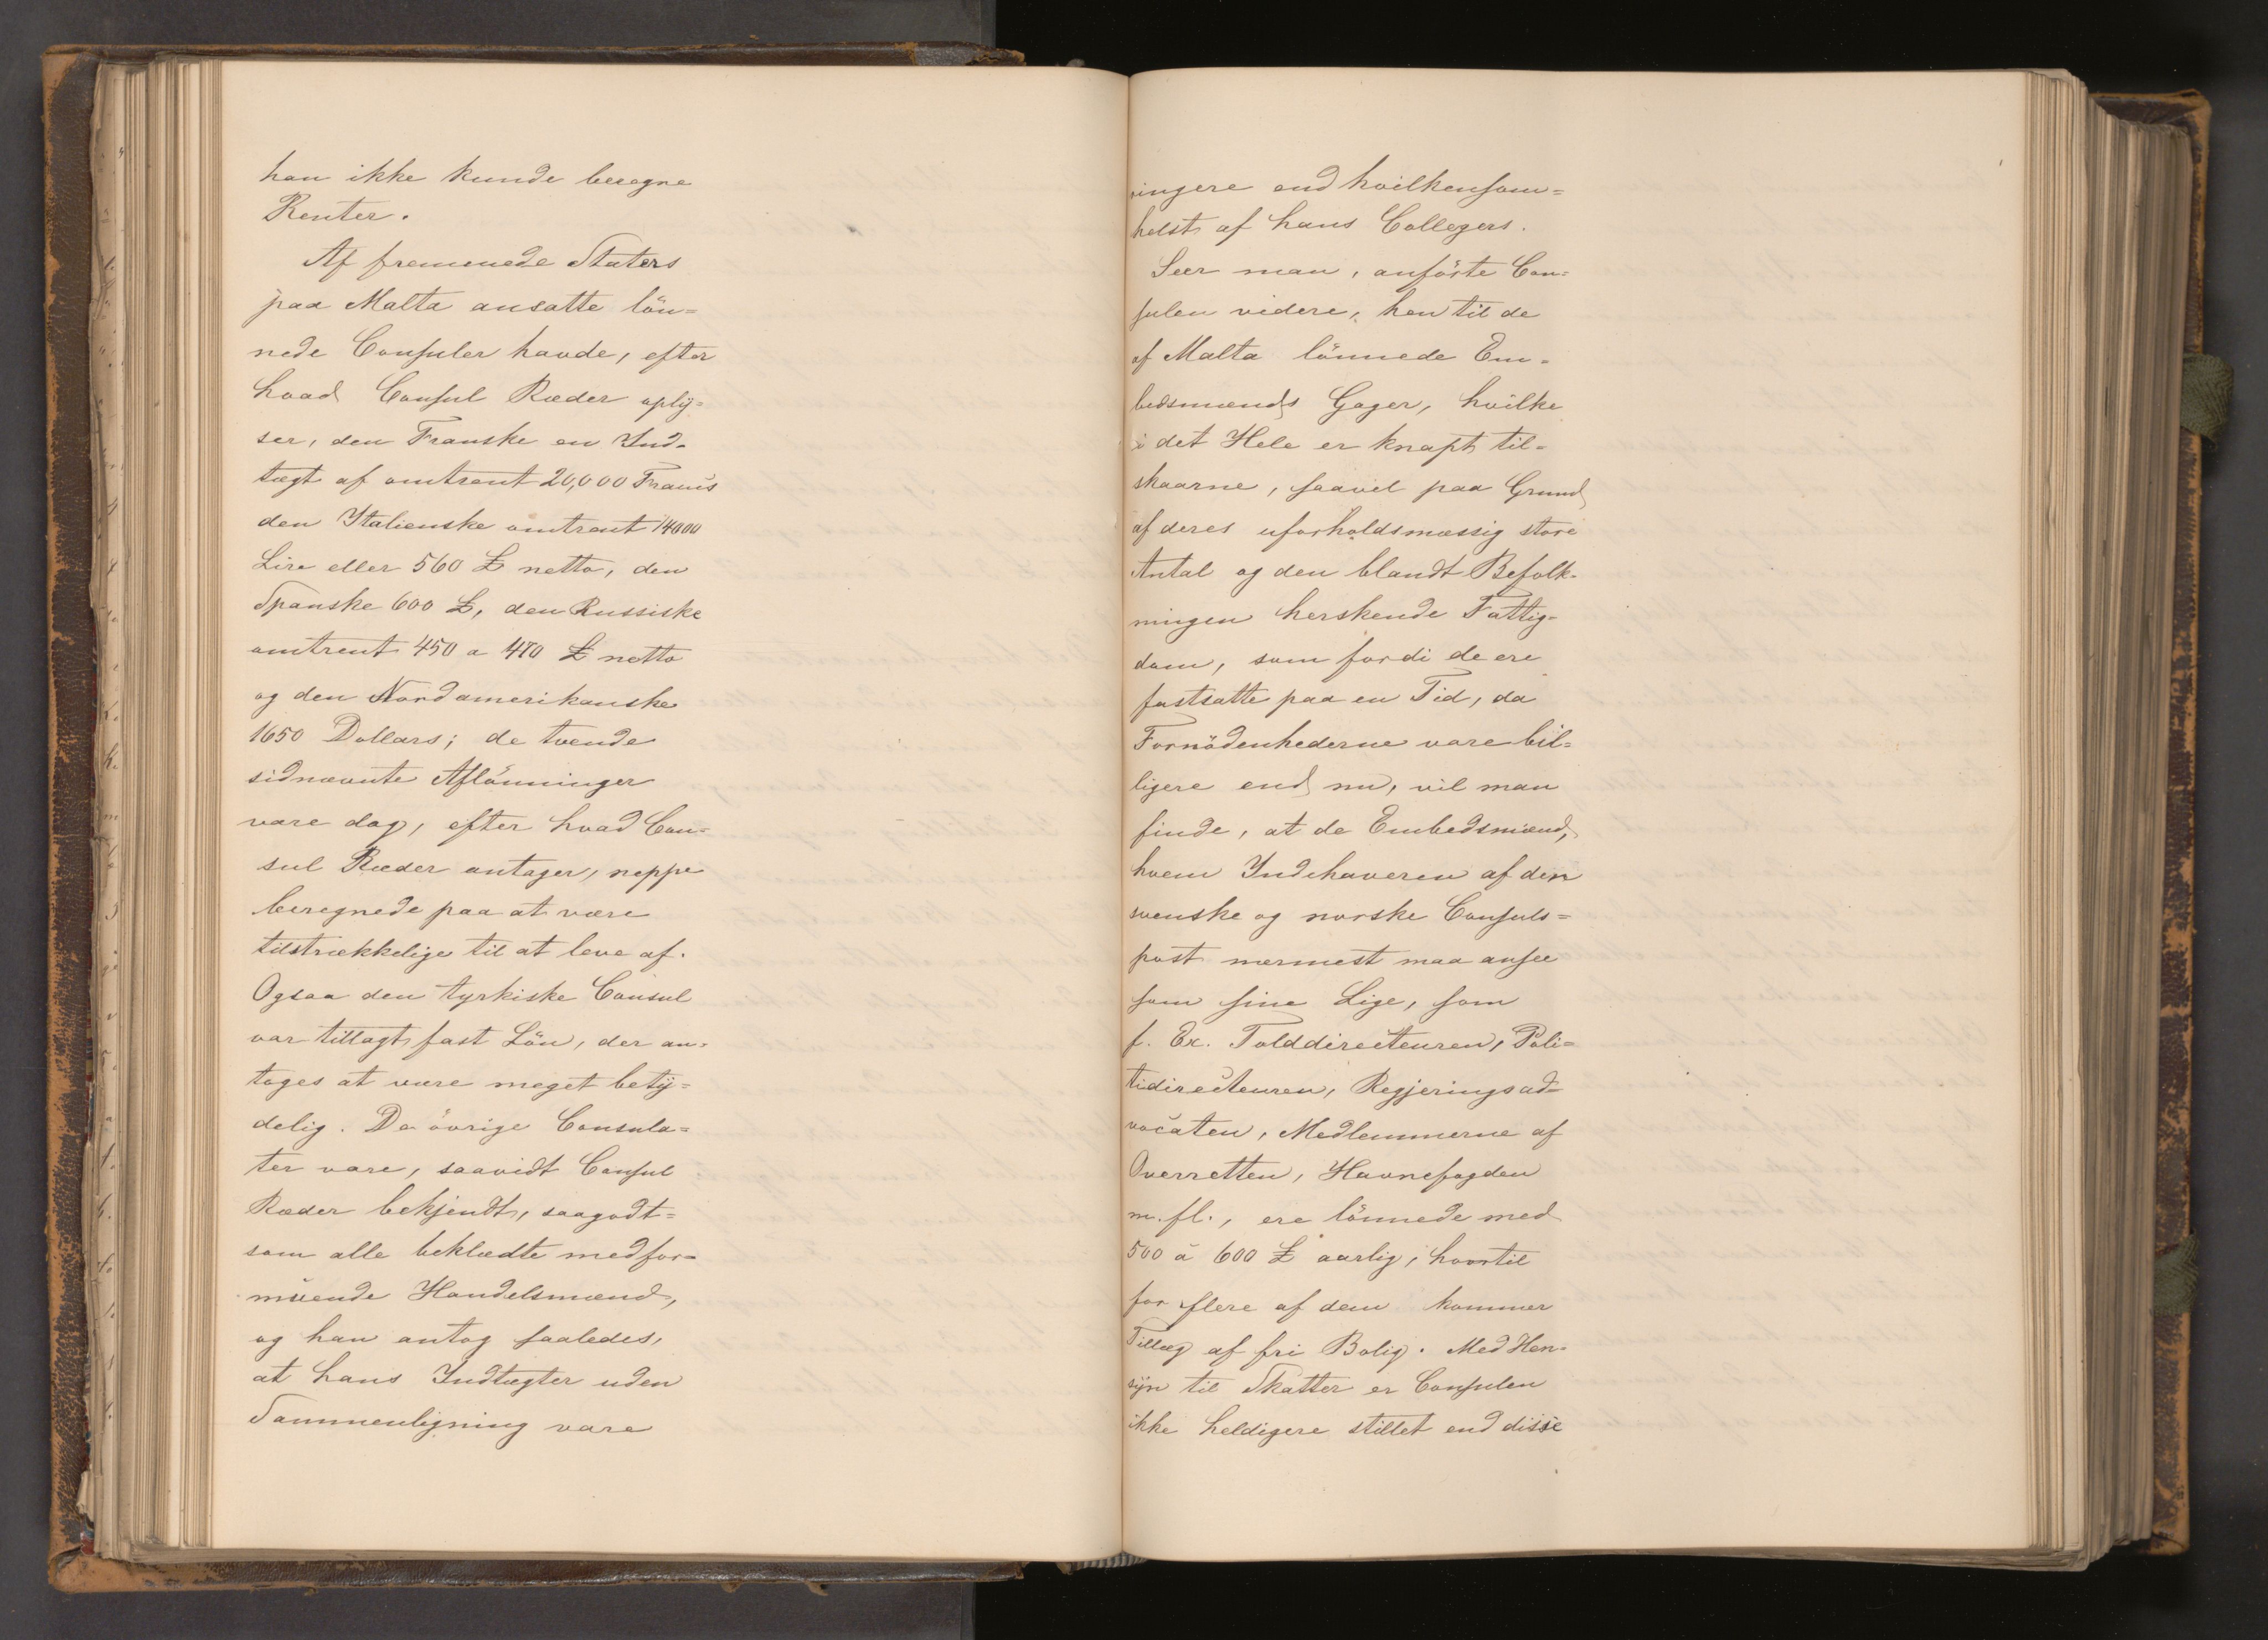 han ikke kunde beregne
Renter.
Af fremmede Staters
paa Malta ansatte lön=
nede Consuler havde, efter
hvad Consul Ræder oply=
ser, den Franske en Ind-
tægt af omtrent 20,000 Francs
den Italienske omtrent 14000
Lire eller 560 £ netto, den
Spanske 600 £, den Russiske
omtrent 450 a 470 £ netto
og den Nordamerikanske
1650 Dollars; de tvende
sidnævnte Aflönninger
vare dog, efter hvad Con=
sul Ræder antager, neppe
beregnede paa at være
tilstrækkelige til at leve af.
Ogsaa den tyrkiske Consul
var tillagt fast Lön, der an-
toges at være meget bety=
delig. De övrige Consula=
ter vare, saavidt Consul
Ræder bekjendt, saagodt=
som alle beklædte med for=
muende Handelsmænd,
og han antog saaledes,
at hans Indtægter uden
Sammenligning vare
ringere end hvilkensom=
helst af hans Collegers.
Seer man, anförte Con=
sulen videre, hen til de
af Malta lönnede Em=
bedsmænds Gager, hvilke
i det Hele er knapt til=
skaarne, saavel paa Grund
af deres uforholdsmæssig store
Antal og den blandt Befolk-
ningen herskende Fattig-
dom, som fordi de ere
fastsatte paa en Tid, da
Fornödenhederne vare bil=
ligere end nu, vil man
finde, at de Embedsmænd,
hvem Indehaveren af den
svenske og norske Consuls=
post nærmest maa ansee
som sine Lige, som
f. Ex. Tolddirecteuren, Poli=
tidirecteuren, Regjeringsad=
vocaten, Medlemmerne af
Overretten, Havnefogden
m. fl., ere lönnede med
500 à 600 £ aarlig, hvortil
for flere af dem kommer
Tillæg af fri Bolig. Med Hen=
syn til Skatter er Consulen
ikke heldigere stillet end disse